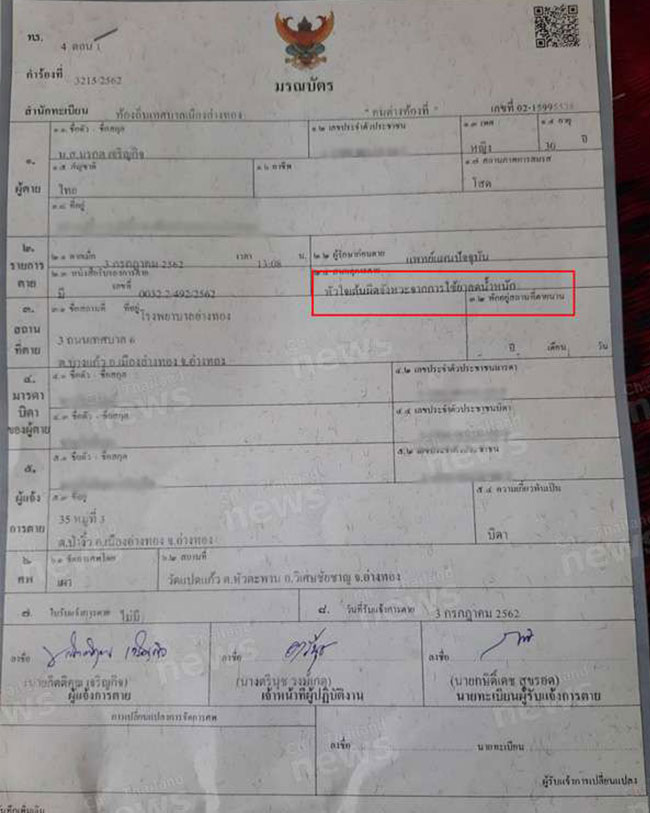 ทร. 4 ตอน 1
คำร้องที่ 3215/2562
มรณบัตร
สำนักทะเบียน ท้องถิ่นเทศบาลเมืองอ่างทอง "คนต่างท้องที่" เลขที่ 02-15995536
๑. ผู้ตาย
๑.๑ ชื่อตัว - ชื่อสกุล
น.ส.มรกต เจริญกิจ
๑.๒ เลขประจำตัวประชาชน
๑.๓ เพศ
หญิง
๑.๔ อายุ
30 ปี
๑.๕ สัญชาติ
ไทย
๑.๖ อาชีพ
๑.๗ สถานภาพการสมรส
โสด
๑.๘ ที่อยู่
๒. รายการตาย
๒.๑ ตายเมื่อ 3 กรกฎาคม 2562 เวลา 13:08 น.
๒.๒ ผู้รักษาก่อนตาย แพทย์แผนปัจจุบัน
๒.๓ หนังสือรับรองการตาย
มี เลขที่ 0032.2-492/2562
๒.๔ สาเหตุการตาย
หัวใจเต้นผิดจังหวะจากการใช้ยาลดน้ำหนัก
๓. สถานที่ตาย
๓.๑ ชื่อสถานที่ ที่อยู่ โรงพยาบาลอ่างทอง
3 ถนนเทศบาล 6
ต.บางแก้ว อ.เมืองอ่างทอง จ.อ่างทอง
๓.๒ พักอยู่สถานที่ตายนาน
ปี เดือน วัน
๔. มารดา บิดา ของผู้ตาย
๔.๑ ชื่อตัว - ชื่อสกุล
๔.๒ เลขประจำตัวประชาชนมารดา
๔.๓ ชื่อตัว - ชื่อสกุล
๔.๔ เลขประจำตัวประชาชนบิดา
๕. ผู้แจ้งการตาย
๕.๑ ชื่อตัว - ชื่อสกุล
๕.๒ เลขประจำตัวประชาชน
๕.๓ ที่อยู่
35 หมู่ที่ 3
ต.ป่างิ้ว อ.เมืองอ่างทอง จ.อ่างทอง
๕.๔ ความเกี่ยวพันเป็น
บิดา
๖. ศพ
๖.๑ จัดการศพโดย
เผา
๖.๒ สถานที่
วัดแปดแก้ว ต.หัวตะพาน อ.วิเศษชัยชาญ จ.อ่างทอง
๗. ใบรับแจ้งการตาย ไม่มี
๘. วันที่รับแจ้งการตาย 3 กรกฎาคม 2562
ลงชื่อ
(นายกิตติคุณ เจริญกิจ)
ผู้แจ้งการตาย
ลงชื่อ
เจ้าหน้าที่ผู้ปฏิบัติงาน
ลงชื่อ
(นายกษิดิ์เดช สุขรอด)
นายทะเบียนผู้รับแจ้งการตาย
การเปลี่ยนแปลงการจัดการศพ
ลงชื่อ นายทะเบียน
ผู้รับแจ้งการเปลี่ยนแปลง
บันทึกเพิ่มเติม
Ch Thailand news